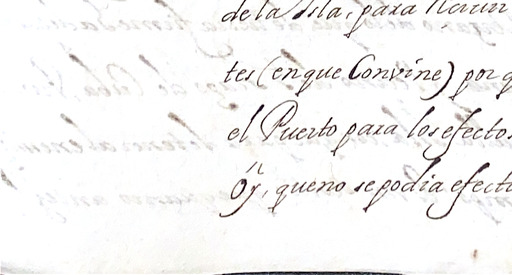 de la Isla, para
tes (en que Convine) por q
el Puerto para los efectos
Oy, que no se podia efect